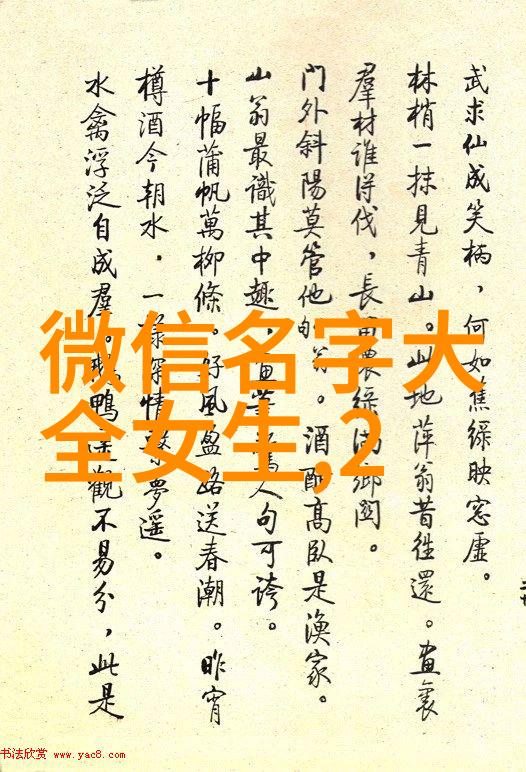 武求仙成笑柄，何如蕉綠映窓虛。
林梢一抹見青山。山地萍翁昔往還。畫裏
羣材誰得伐，長留濃綠滿鄉関。
門外斜陽莫管他。酒酣高臥是漁家。
山翁最識其中趣，人句可誇。
十幅蒲帆萬柳條。好風盈路送春潮。昨宵
樽酒今朝水，一樣深情夢遥。
水禽浮泛自成羣。鴨遠觀不易分，此是
微信名字大
全女生,2
书法欣赏 www.yac8.com